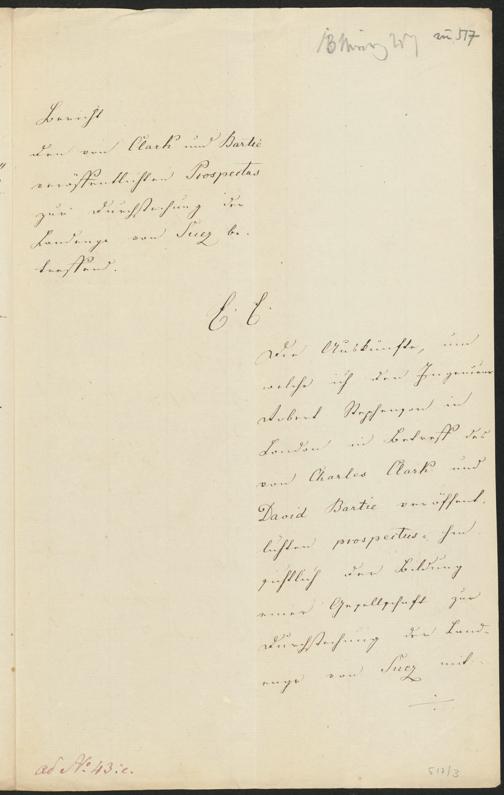 18 März 57
VII 517
Bericht
den von Clark und Bartie
veröffentlichten Prospectus
zur Durchstechung der
Landenge von Suez be-
treffend.
E. E.
Die Auskünfte, um
welche ich den Ingenieur
Robert Stephenson in
London in Betreff des
von Charles Clark und
David Bartie veröffent-
lichten prospectus, hin
sichtlich der Bildung
einer Gesellschaft zur
Durchstechung der Land-
enge von Suez mit-
ad No 43 i.c.
517/3